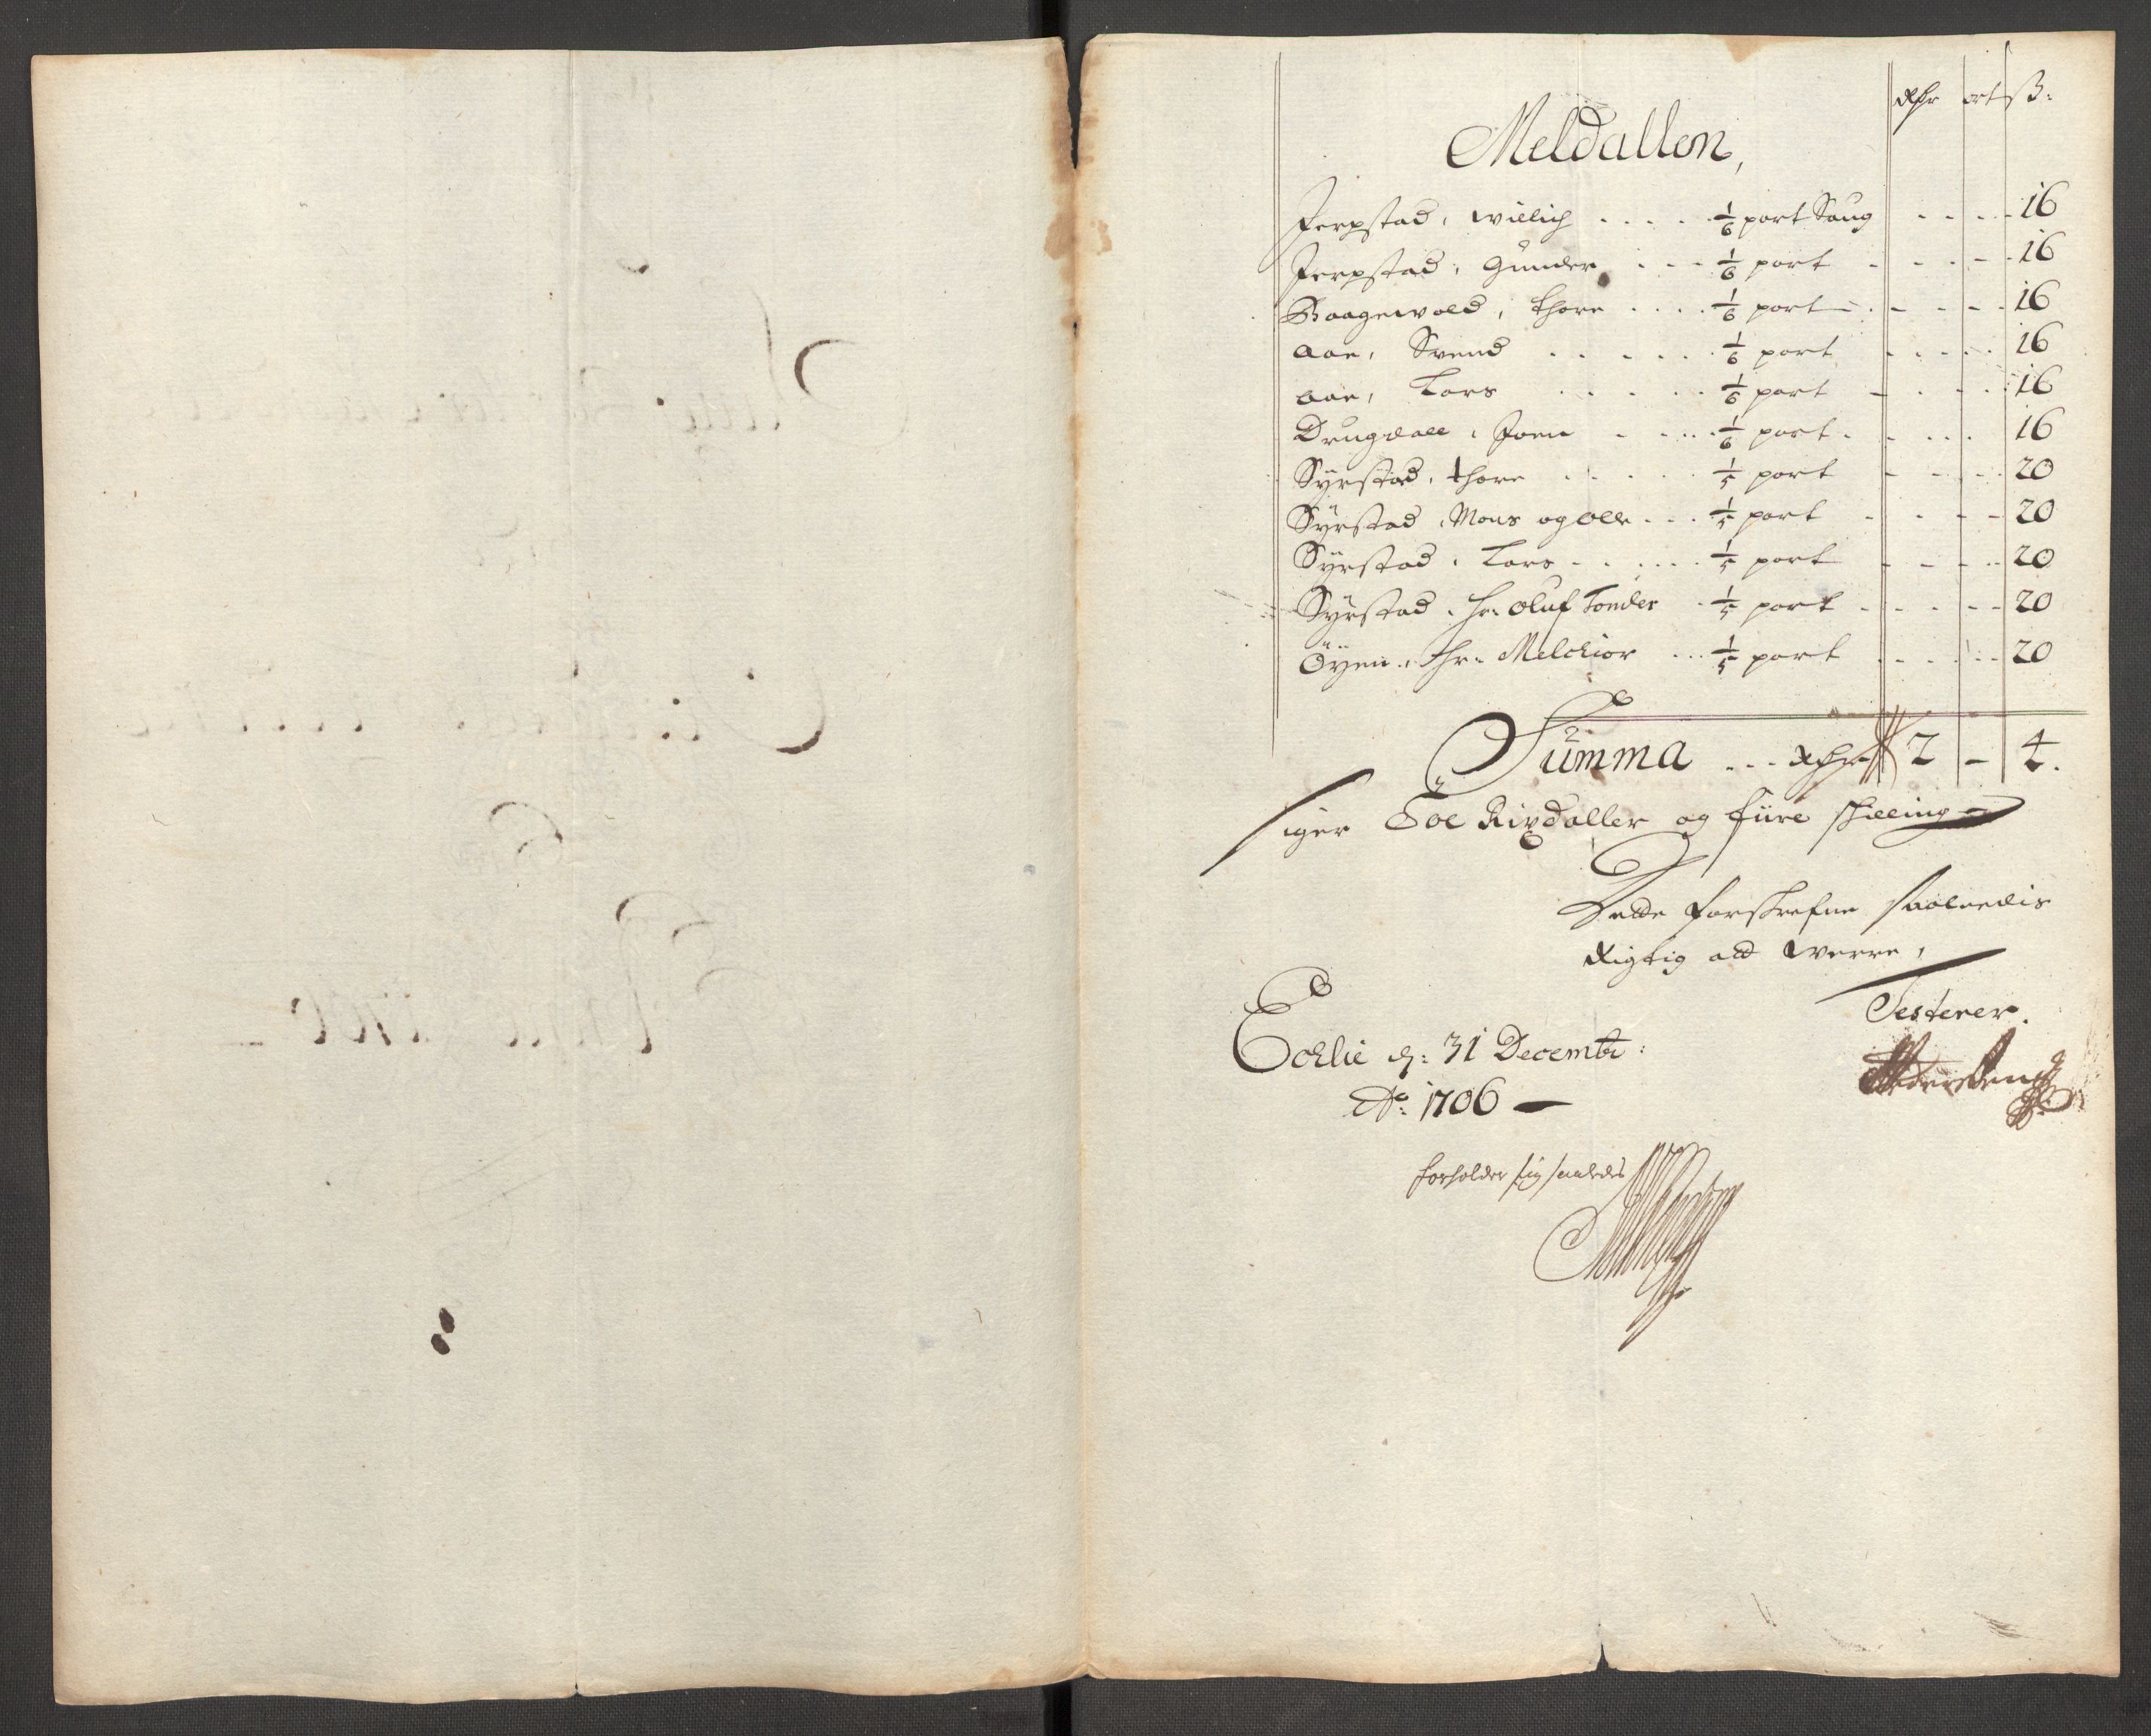 Rdr ort ß:
Meldallen,
Jerpstad, Willich . . . . . 1/6 part Saug . . . . 16
Jerpstad, Gunder . . . 1/6 part - . . . - . 16
Baagewold, Thore . . . . 1/6 part - . - - - - . 16
Aae, Svend . . . . . . 1/6 part . . . . . 16
Aae, Lars . . . . . 1/6 part - . . . . 16
Drugdall, Joen . . . . . 1/6 part . . . . . 16
Syrstad, Thore . . . . . 1/5 part - - . - . 20
Syrstad, Mons og Ole . . . 1/5 part - . - - - 20
Syrstad, Lars - . . . . . 1/5 part - - . . 20
Syrstad, Hr: Oluf Tonder . 1/5 part . . . . - - 20
Öyen, Hr: Melchior . . . 1/5 part . . . . . - 20
Summa . . . Rdr 2 - 4.
siger Toe Rixdaller og fiire skilling
Dette forskrefne saaledis
Rigtig att werre,
Testerer.
Echlie d: 31 Decembr:
Ao: 1706 —
forholder sig saaledes